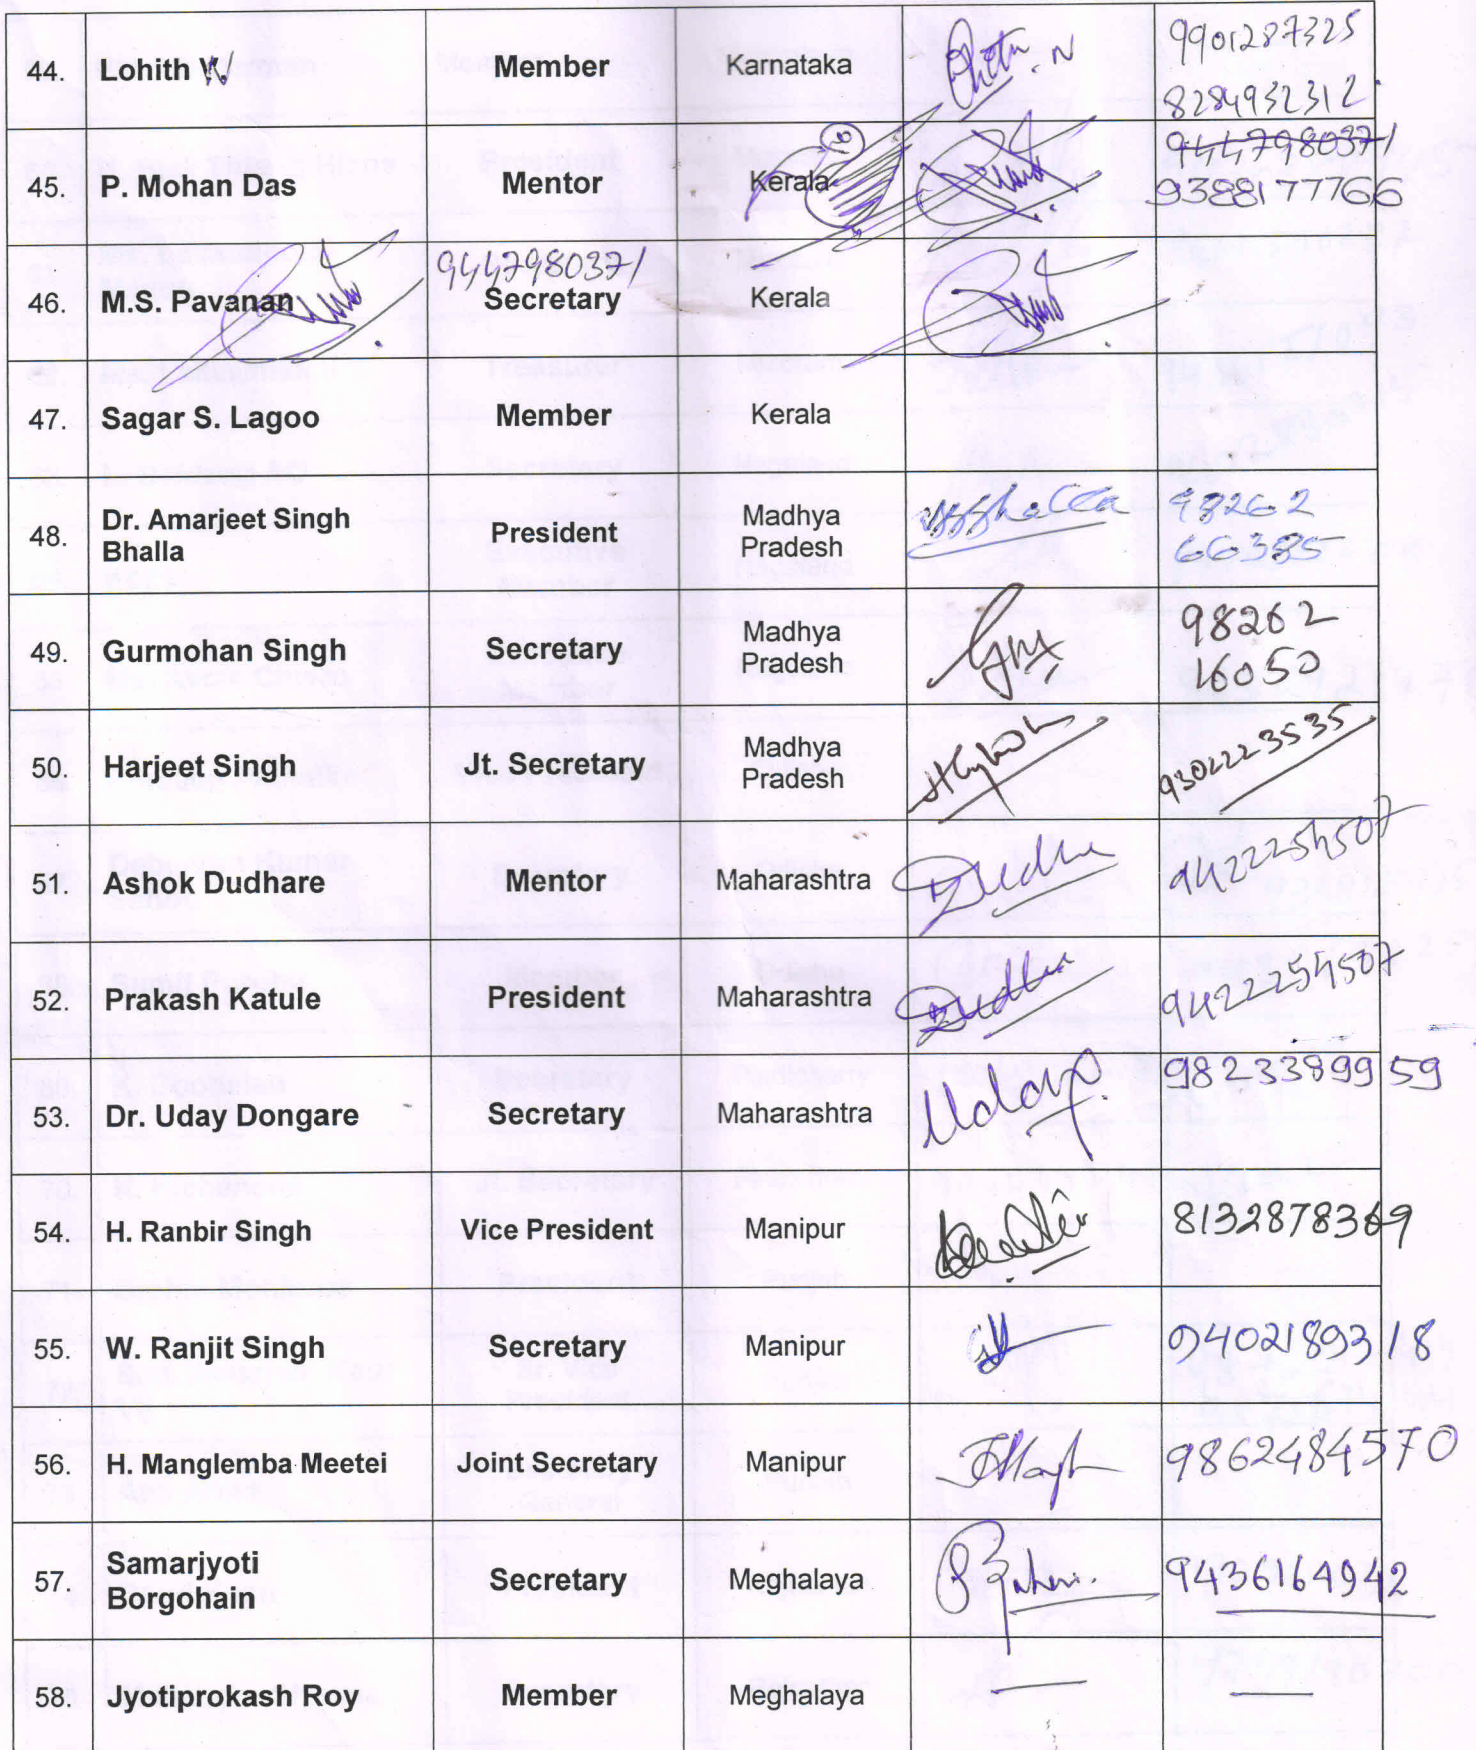 44. Lohith N Member Karnataka 9901287325
8284932312
45. P. Mohan Das Mentor Kerala 9447980371
9388177766
9447980371
46. M.S. Pavanan Secretary Kerala
47. Sagar S. Lagoo Member Kerala
48. Dr. Amarjeet Singh
Bhalla President Madhya
Pradesh 98262
66385
49. Gurmohan Singh Secretary Madhya
Pradesh 98262
16050
50. Harjeet Singh Jt. Secretary Madhya
Pradesh 9302223535
51. Ashok Dudhare Mentor Maharashtra Dudhare 9422254507
52. Prakash Katule President Maharashtra Dudhare 9422254507
53. Dr. Uday Dongare Secretary Maharashtra 9823389959
54. H. Ranbir Singh Vice President Manipur 8132878369
55. W. Ranjit Singh Secretary Manipur 9402189318
56. H. Manglemba Meetei Joint Secretary Manipur 9862484570
57. Samarjyoti
Borgohain Secretary Meghalaya 9436164942
58. Jyotiprokash Roy Member Meghalaya